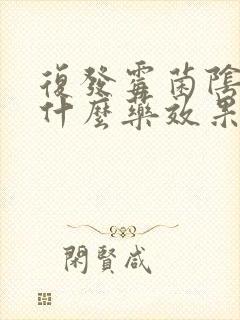 復發霉菌陰
什麼藥效果
閑賢咸